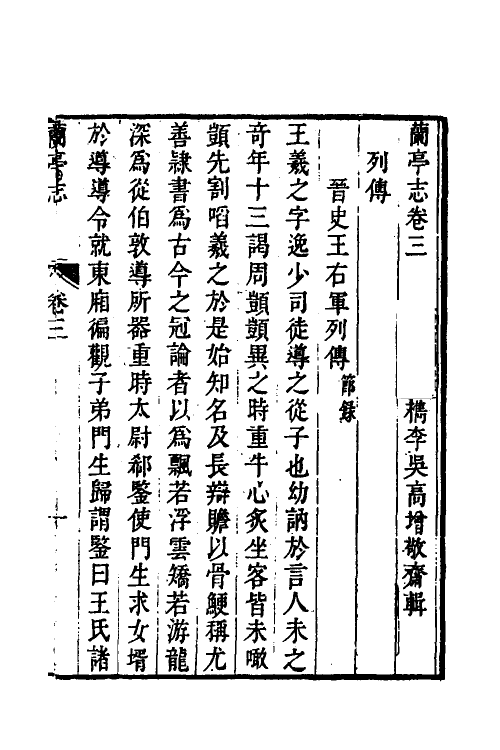 蘭亭志卷三
檇李吳高增敬齋輯
列傳
晉史王右軍列傳節錄
王羲之字逸少司徒導之從子也幼訥於言人未之
奇年十三謁周顗顗異之時重牛心炙坐客皆未噉
顗先割啗羲之於是始知名及長辯贍以骨鯁稱尤
善隷書爲古今之冠論者以爲飄若浮雲矯若游龍
深爲從伯敦導所器重時太尉郗鑒使門生求女壻
於導導令就東廂徧觀子弟門生歸謂鑒曰王氏諸
蘭亭志
卷三
一